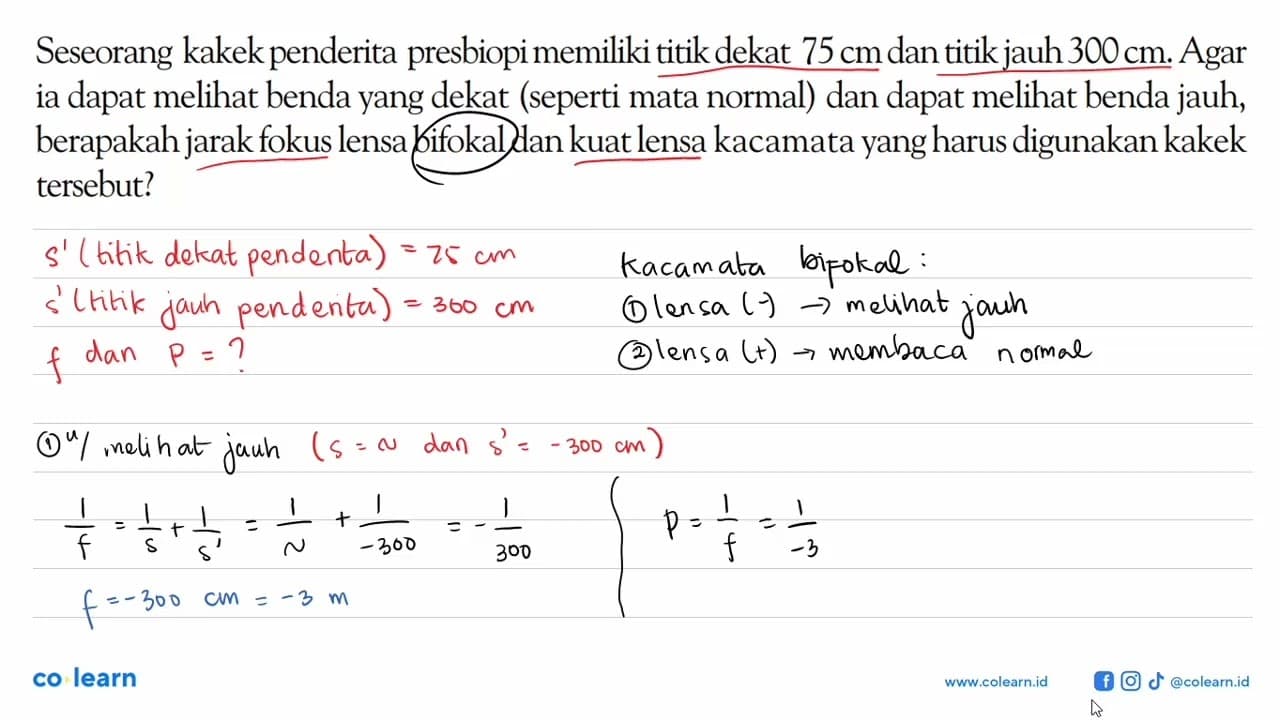 Seseorang kakek penderita presbiopi memiliki titik dekat 75 cm dan titik jauh 300 cm. Agar
ia dapat melihat benda yang dekat (seperti mata normal) dan dapat melihat benda jauh,
berapakah jarak fokus lensa bifokal dan kuat lensa kacamata yang harus digunakan kakek
tersebut?
s' (titik dekat pendenta) = 75 cm
s' (titik jauh pendenta) = 300 cm
f dan P = ?
Kacamata bifokal :
① lensa (-) → melihat jauh
② lensa (+) → membaca normal
① u/ melihat jauh (s = ~ dan s' = -300 cm)
1/f = 1/s + 1/s' = 1/~ + 1/-300 = - 1/300
f = -300 cm = -3 m
P = 1/f = 1/-3
co learn
www.colearn.id
@colearn.id